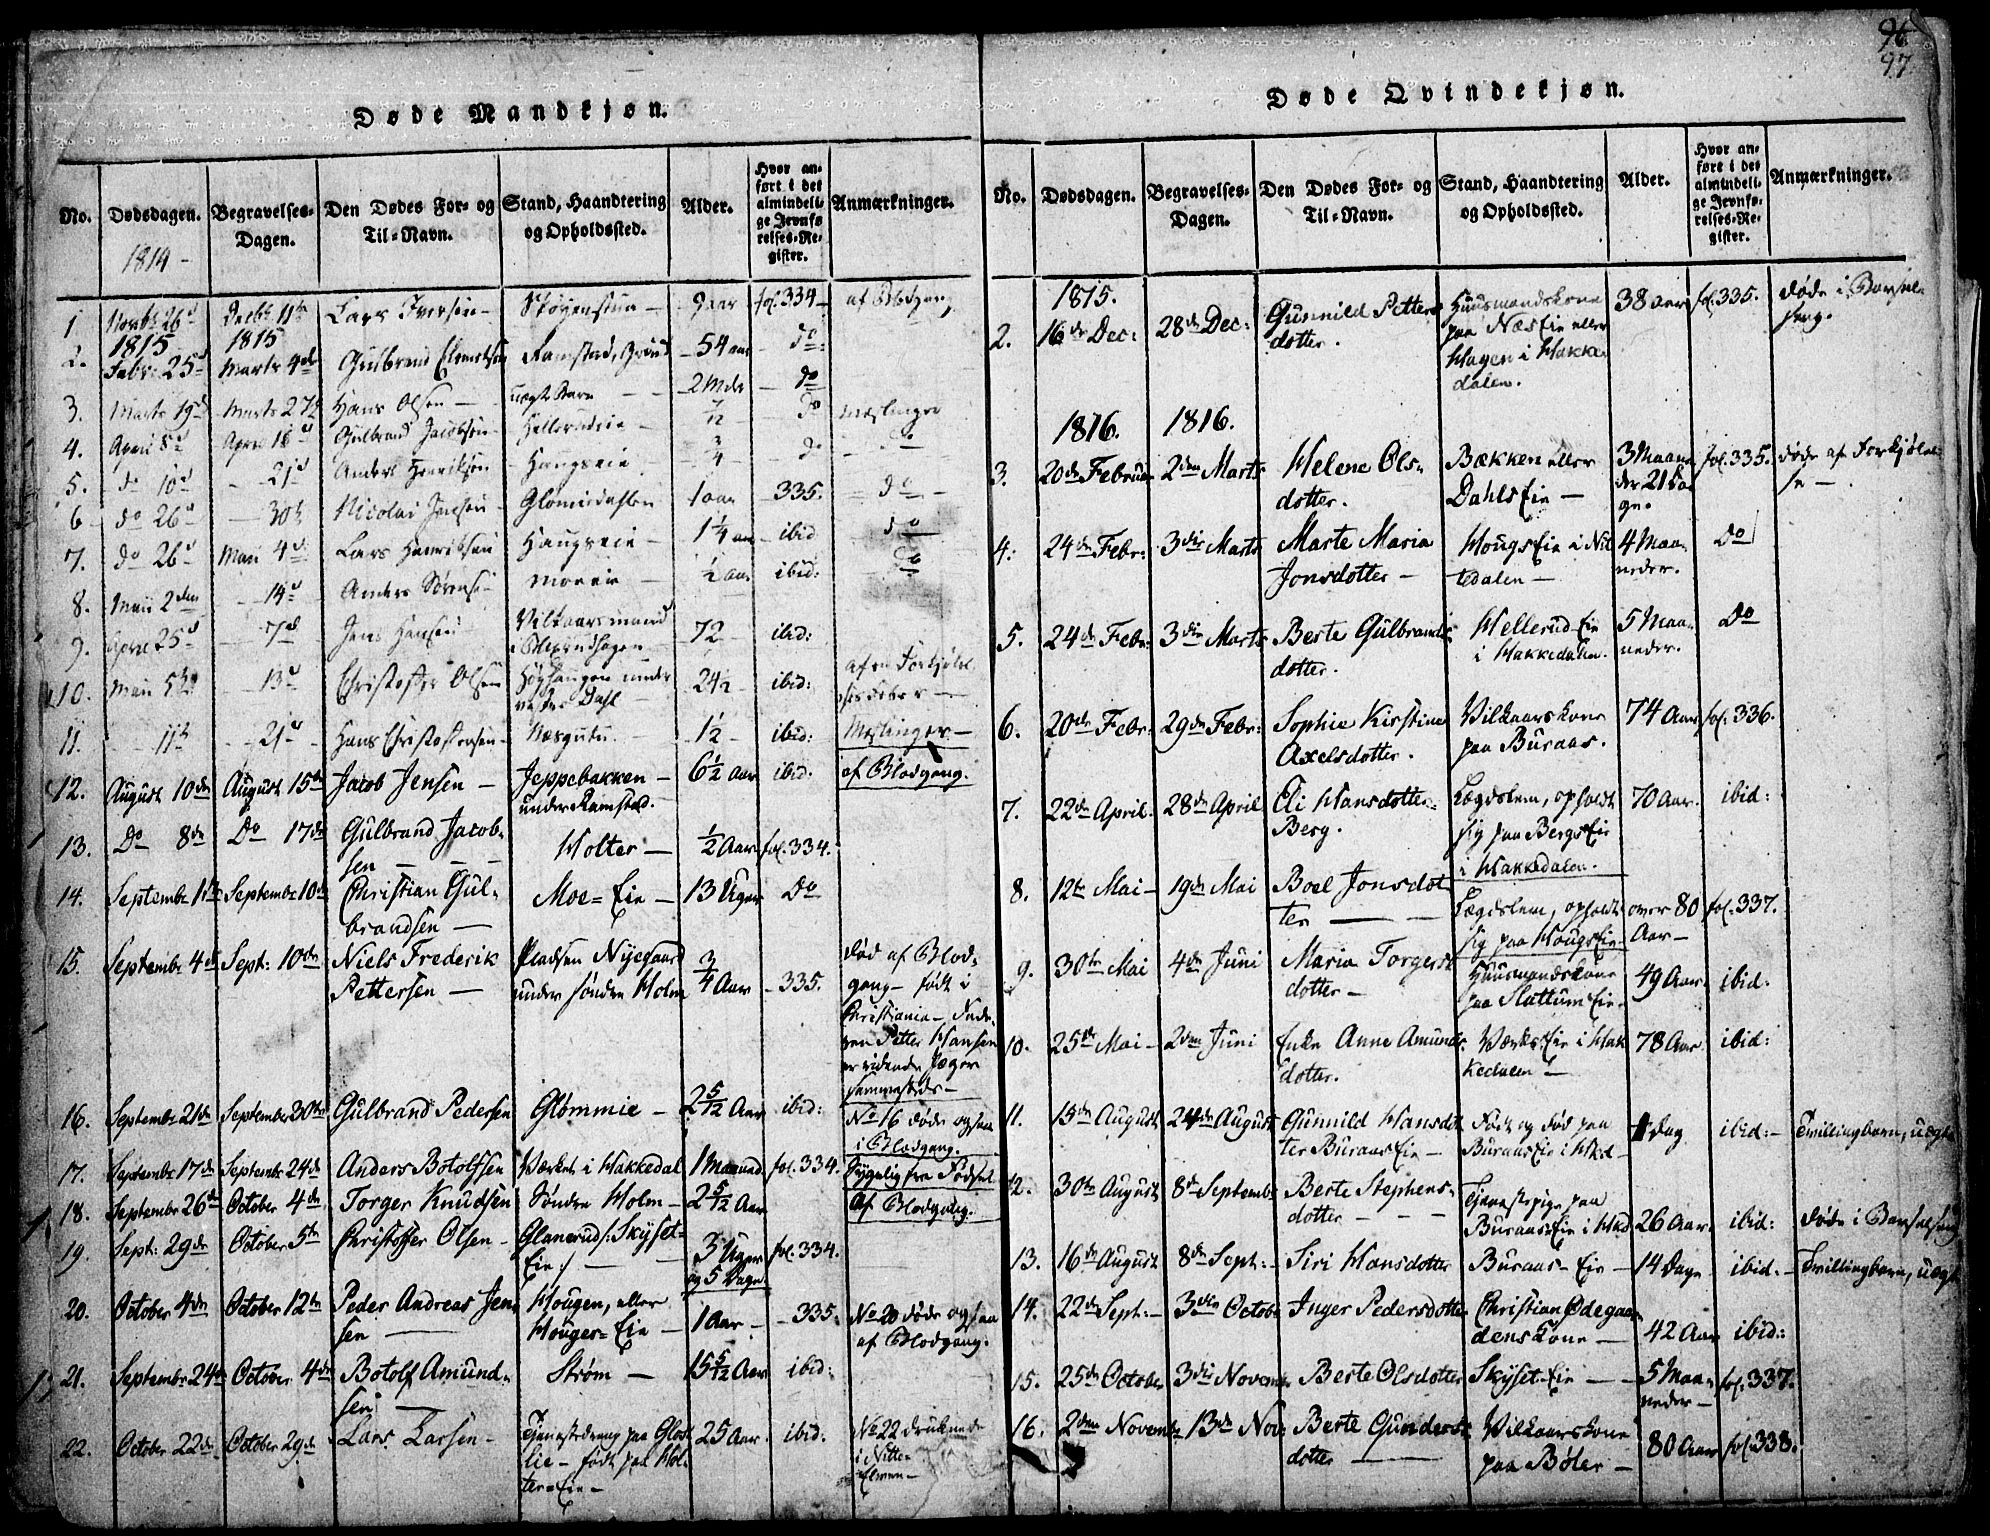 96
97
Døde Mandkjøn.
No.
Dødsdagen.
Begravelses-
Dagen.
Den Dødes For- og
Til-Navn.
Stand, Haandtering
og Opholdssted.
Alder.
Hvor an-
ført i det
almindeli-
ge Jevnfø-
relses-Re-
gister.
Anmærkninger.
1814 -
1 Novbr 26d Decbr 11te Lars Iversen - Skøyenstuen - 9 aar fol. 334 - af Blodgang
1815 1815
2. Febr: 25d Marts 4de Gulbrand Ramstad, - 54 aar - do:
3. Marts 19d Marts 27d Hans Olsen - uægte Barn - 2 Mdr - do
4. April 8d April 18d Gulbrand Jacobsen - Hellerudeie - 7/12 - do Meslinger
5. do 10d - 21d Anders Henriksen - Haugseie - 3/4 do - do -
6 - do 26d - 30te Nicolai Jensen - 1 aar - 335. - do -
7. do 26d Maii 4d Lars Henriksen Haugseie - 1 1/4 aar - ibid - do
8. Maii 2den - 14d Anders Sørense- moeeie - 1/2 aar ibid: - do
9. April 25d - 7d Jens Hansen Vilkaarsmand
i - 72 - ibid:
10. Maii 5te - 13d Christoffer Olsen Høyhaugen under
Dahl 24½ - ibid: af en Forkjølel
sesfeber -
11. - 11te - 21d - Hans Christofersen - Næsgutu - - 1½ - ibid: Meslinger -
12. August 10de August 15de Jacob Jensen - Jeppebakken -
under Ramstad. - 6½ Aar ibid. af Blodgang.
13. Do 8de Do 17de Gulbrand Jacob-
sen - Holter - ½ Aar fol. 334.
14. Septembr 1ste Septembr 10de Christian Gul-
brandsen - Moe=Eie - 13 Uger Do
15. Septembr 4de Sept: 10de Niels Frederik
Pettersen - Pladsen Nyegaard
under søndre Holm 3/4 Aar - 335. død af Blod-
gang - født i
Christiania - Fade-
ren Petter Hansen
er ridende Jæger
sammesteds -
16. Septembr 21de Septembr 30te Gulbrand Pedersen Glømmie - 2 5/12 Aar ibid: No 16 døde ogsaa
i Blodgang.
17. Septembr 17de Septembr 24de Anders Botolfsen Værket i Hakkedal 1 Maaned fol. 334. sygelig fra Fødsel
18. Septembr 26de October 4de Torger Knudsen Søndre Holm - 2 5/12 Aar Af Blodgang.
19. Sept: 29de October 5te Christoffer Olsen - Glanerud /: Skyset-
Eie :/ - 3 Uger
og 5 Dage fol. 334.
20. October 4de October 12te Peder Andreas Jen-
sen - Hougen, eller
Houger=Eie - 1 Aar - - 335: No 20 døde ogsaa
af Blodgang.
21. Septembr 24de October 4de Botolf Amund-
sen - Strøm - 15 5/12 Aar ibid:
22. October 22de October 29de Lars Larsen - Tjenestedreng paa Glos-
lie - født paa Hol-
ter=Eie - 25 Aar. ibid: No 22 druknede
i Nitte-
Elven -
Døde Qvindekjøn.
No.
Dødsdagen.
Begravelses-
Dagen.
Den Dødes For- og
Til-Navn.
Stand, Haandtering
og Opholdssted.
Alder.
Hvor an-
ført i det
almindeli-
ge Jevnfø-
relses-Re-
gister.
Anmærkninger.
1815.
2. 16de Dec: 28de Dec: Gunnild Petters
dotter. Huusmandskone
paa NæsEie eller
Hagen i Hakke-
dalen. 38 aar fol. 335. døde i Barsel-
seng.
1816. 1816.
3. 20de Februar 2den Marts Helene Ols-
dotter. Bækken eller
DahlsEie - 3 Maane
der 21 Da-
ge. fol. 335. døde af Forkjølel-
se -
4: 24de Febr: 3die Marts Marte Maria
Jonsdotter - HougsEie i Nit
tedalen - 4 Maa-
neder. Do
5. 24de Febr: 3die Marts Berte Gulbrands-
dotter. HellerudEie
i Hakkedalen. 5 Maa-
neder. Do
6. 20de Febr: 29de Febr: Sophie Kirstine
Axelsdotter. Vilkaarskone
paa Buraas. 74 Aar fol. 336.
7. 22de April. 28de April Eli Hansdotter
Berg. Lægdslem, opholdt
sig paa BergsEie
i Hakkedalen. 70 Aar. ibid:
8. 12te Mai - 19de Mai Boel Jonsdot
ter - Lægdslem, opholdt
sig paa HougsEie - over 80
Aar - fol. 337.
9. 30te Mai 4de Juni Maria Torgers-
dotter - Huusmandskone
paa SlattumEie - 49 Aar. ibid:
10. 25de Mai - 2den Juni Enke Anne Amunds-
dotter. VærksEie i Hak
kedalen - 78 Aar. ibid:
11. 15de August 24de August Gunnild Hansdot
ter BuraasEie - Født og død paa
BuraasEie i Hkd - 1 Dag ibid: - Tvillingbarn, uægte
12. 30te August 8de Septembr Berte Stephens-
dotter - - - Tjenestepige paa
BuraasEie i Hkd 26 Aar. ibid: døde i Barselseng
13. 16de August 8de Sept: - Siri Hansdotter Buraas-Eie - 14 Dage ibid: - Tvillingbarn, uægte
14. 22de Sept: - 3die Octobr Inger Pedersdotter Christian Ødegaar
dens Kone - 42 Aar ibid:
15. 25de October 3die Novembr Berte Olsdotter Skyset-Eie - - 5 Maa-
neder - fol. 337.
16. 2den Novembr 13de Nov: Berte Gunders-
dotter - Vilkaarskone
paa Bøler - 80 Aar fol. 338.